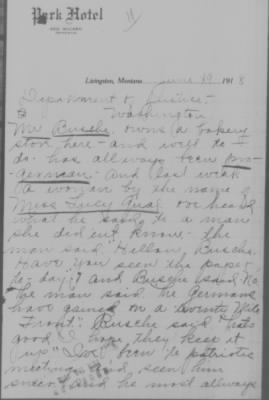 Park Hotel
Livingston, Montana, June 19 1918
Department of Justice,
Washington
Mr. Busche, owns a bakery
store here - and will do
do - has allways been pro-
German - and last week
a woman by the name of
Miss Lucy over heard
what he said to a man
she did ent know - the
man said "Hellow Busche
Have you seen the paper
to day"? and Busche said No,
the man said the Germans
have gained on a Mile
Front". Busche said "thats
good I hope they keep it
up" I've been to patriotic
meetings and seen him
sneer, and he most allways